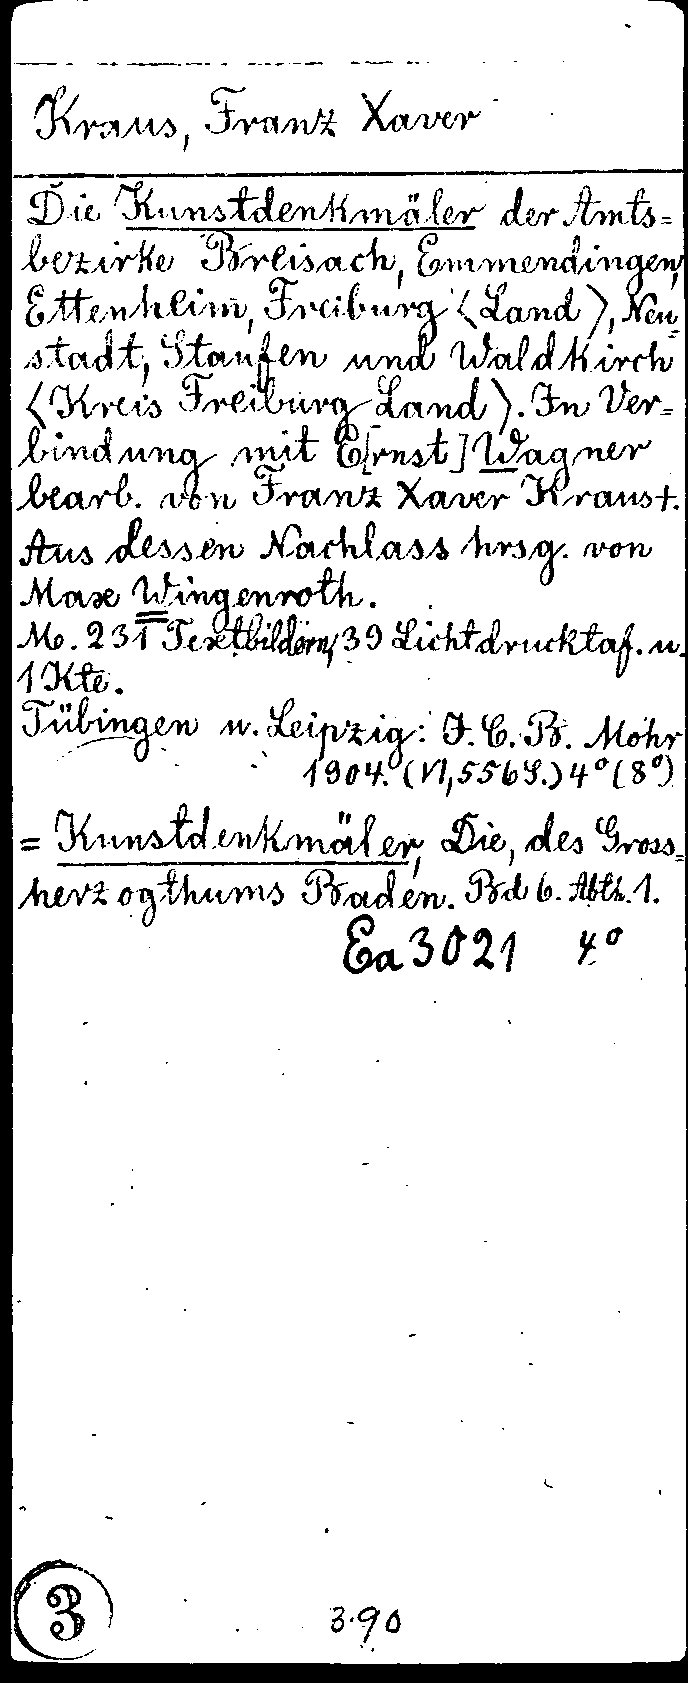 Kraus, Franz Xaver
Die Kunstdenkmäler der Amts=
bezirke Breisach, Emmendingen,
Ettenheim, Freiburg (Land), Neu=
stadt, Staufen und Waldkirch
(Kreis Freiburg Land). In Ver=
bindung mit E[rnst] Wagner
bearb. von Franz Xaver Kraus†.
Aus dessen Nachlass hrsg. von
Max Wingenroth.
M. 231 Textbildern, 39 Lichtdrucktaf. u.
1 Kte.
Tübingen u. Leipzig: J. C. B. Mohr
1904. (VI, 556 S.) 4° (8°)
= Kunstdenkmäler, Die, des Gross=
herzogthums Baden. Bd 6. Abth. 1.
Ea 3021 4°
3
3.90